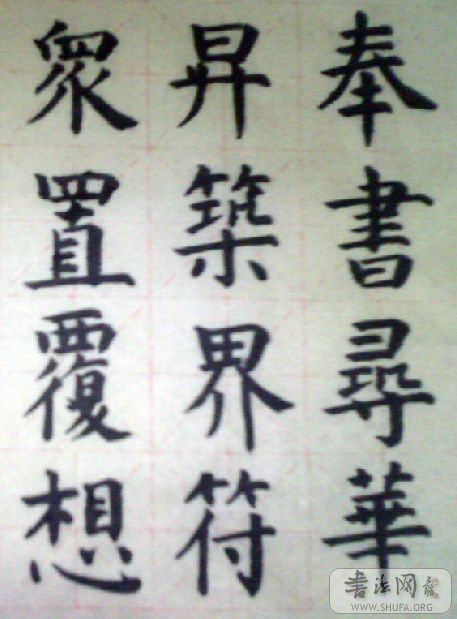 奉書尋華
昇築界符
眾置覆想
書法网
WWW.SHUFA.ORG